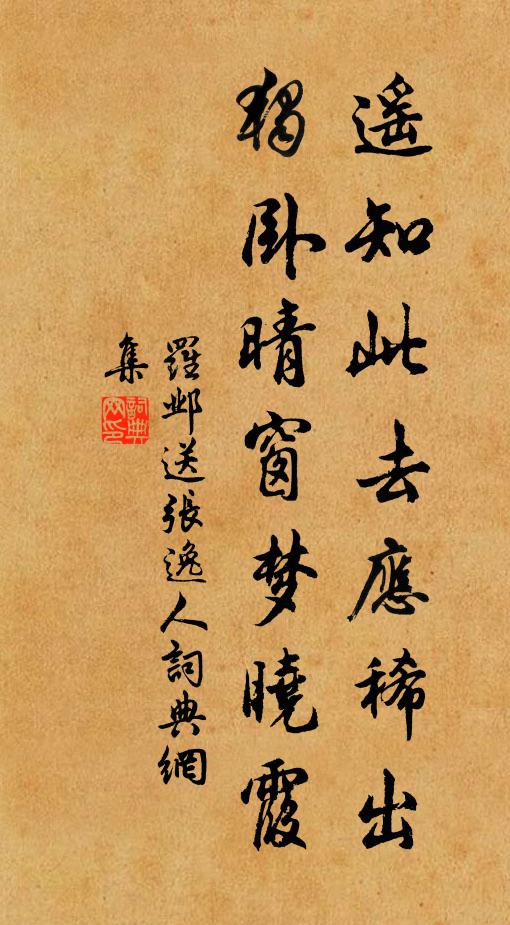 遥知此去應稀出
獨卧晴窗梦曉霞
羅邺送張逸人詞典網
集
詞典
网印